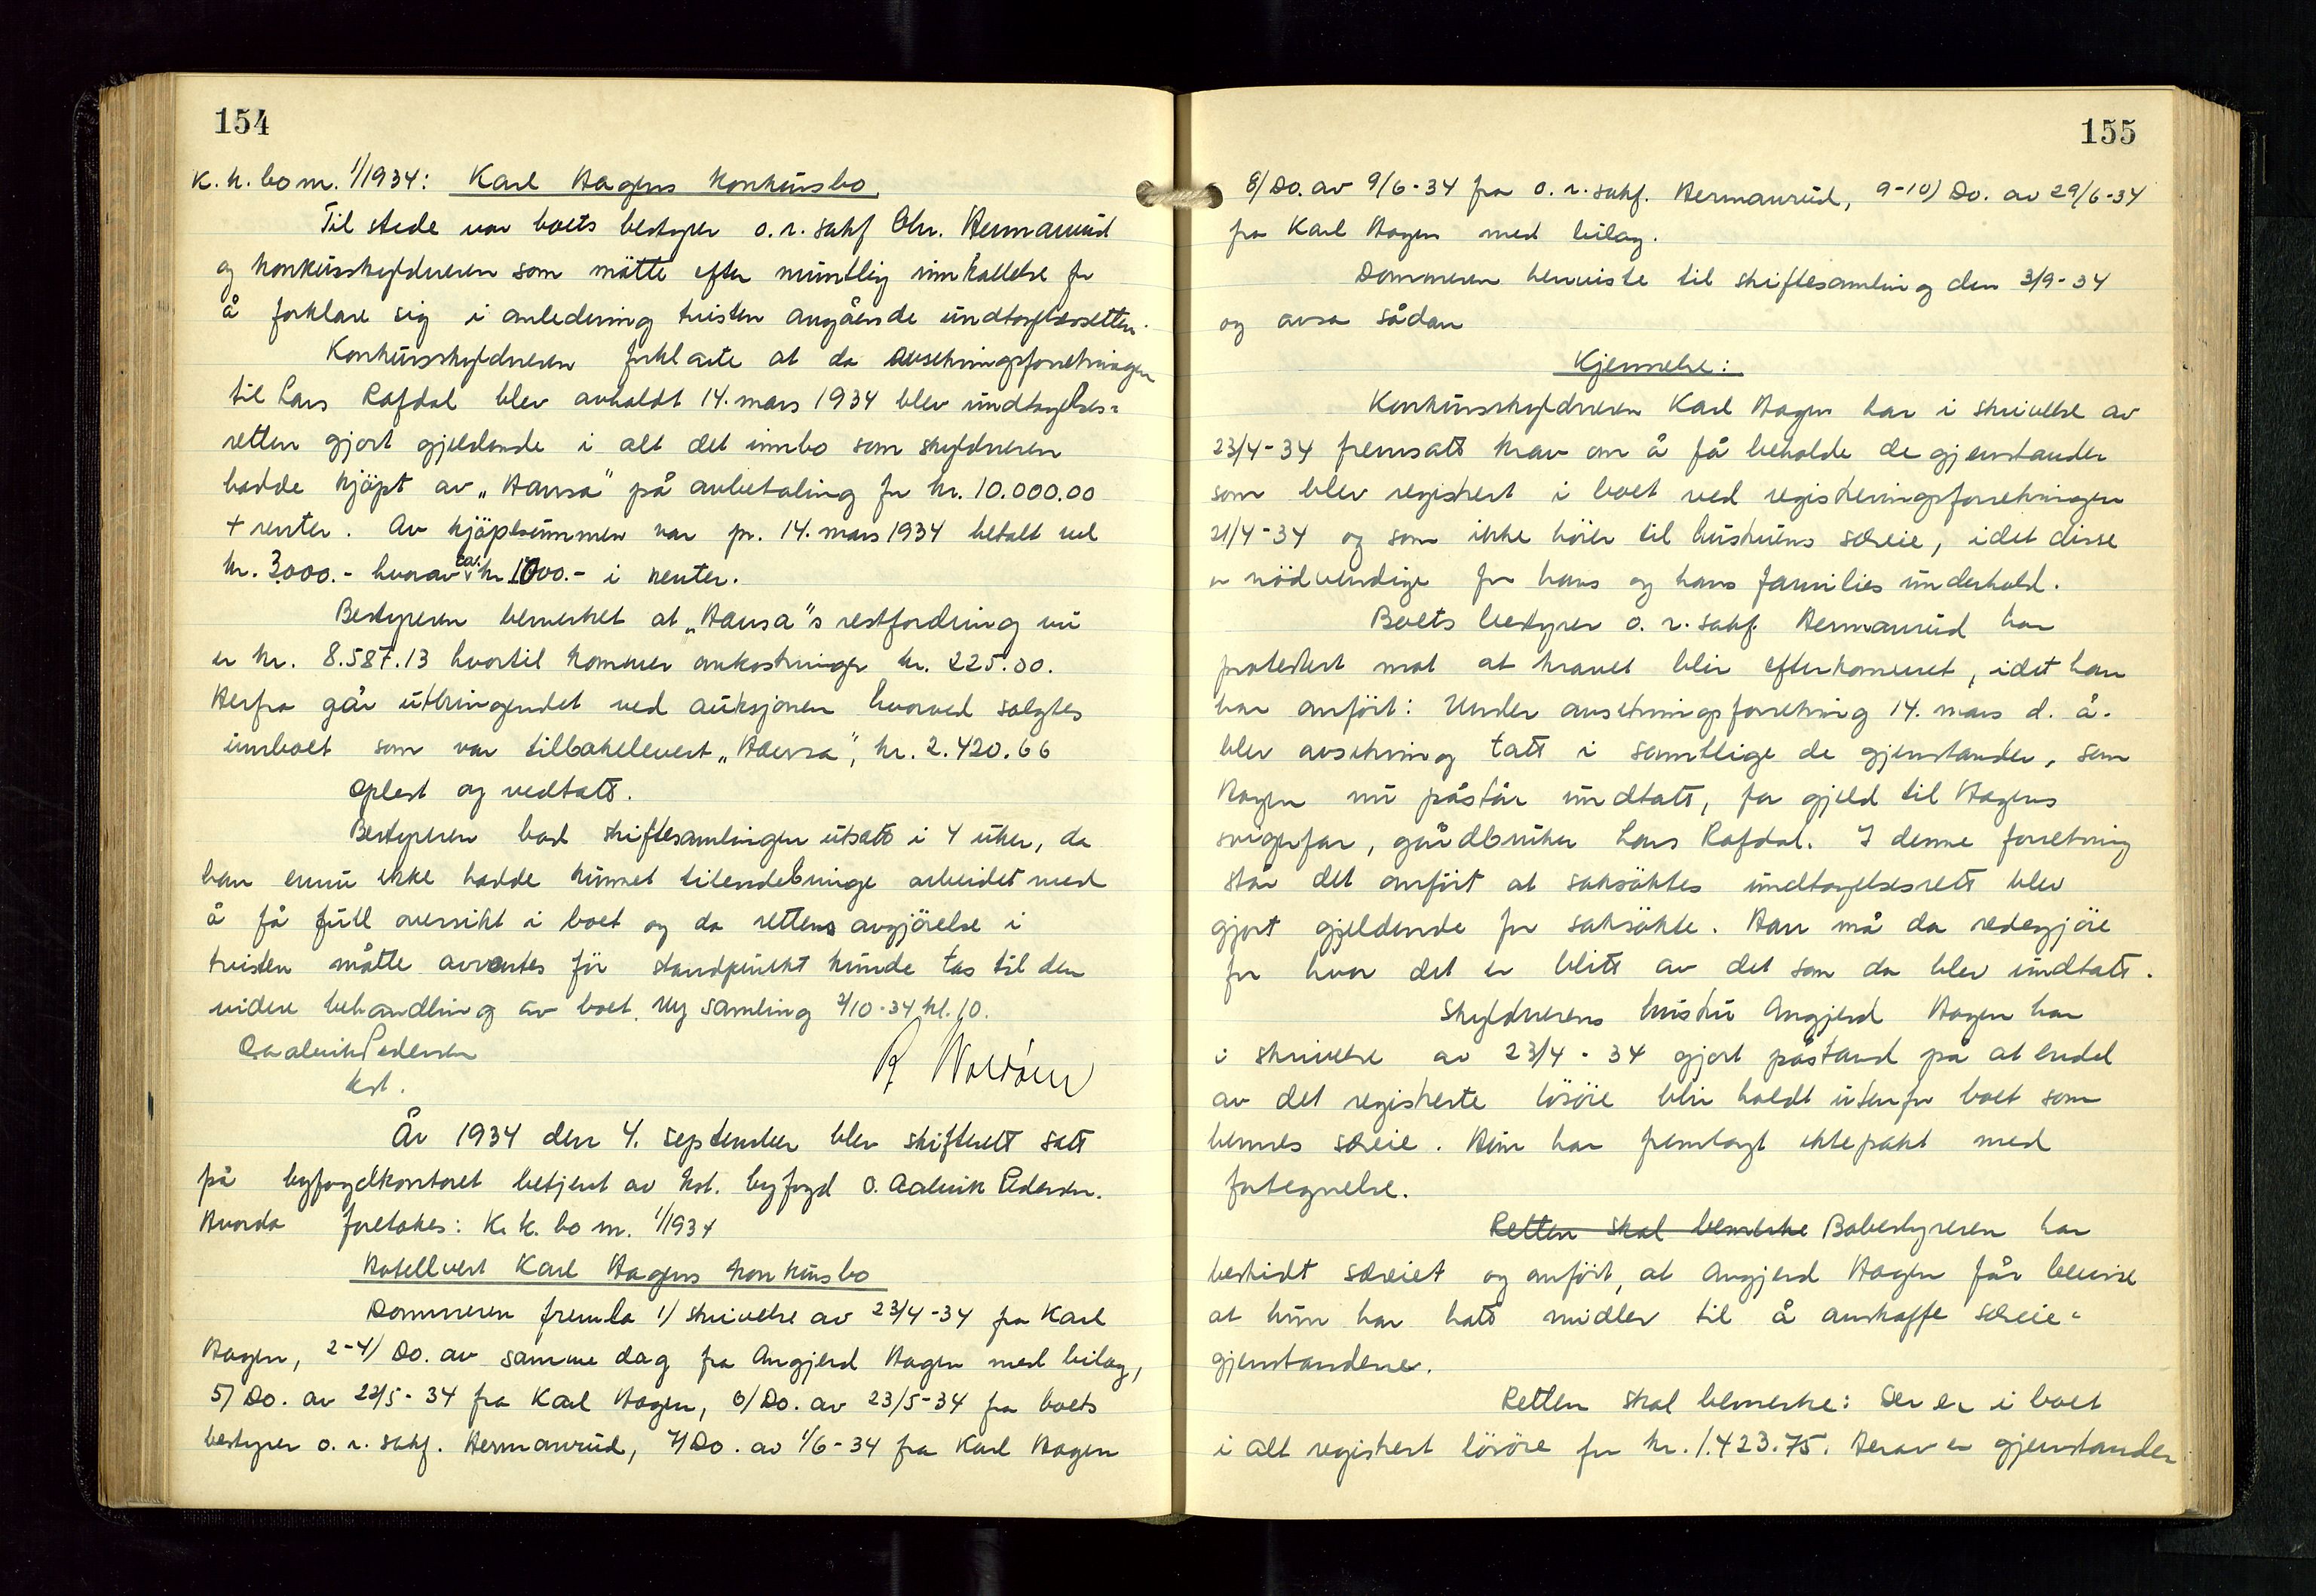 154
K. k. bo nr. 1/1934: Karl Hagens konkursbo.
Til stede var boets bestyrer o.r.sakf Chr. Hermanrud
og konkursskyldneren som møtte efter muntlig innkallelse for
å forklare sig i anledning tvisten angående undtagelsesretten.
Konkursskyldneren forklarte at da avsetningsforretningen
til Lars Rafdal blev avholdt 14. mars 1934 blev undtagelses=
retten gjort gjeldende i alt det innbo som skyldneren
hadde kjöpt av „Hansa" på avbetaling for kr. 10.000.00
+ renter. Av kjöpesummen var pr. 14. mars 1934 betalt vel
kr. 3000.- hvorav ca. kr 1000.- i renter.
Bestyreren bemerket at „Hansa"s restfordring nu
er kr. 8.587.13 hvortil kommer omkostninger kr. 225.00.
Herfra går utbringendet ved auksjonen hvorved solgtes
innboet som var tilbakelevert „Hansa", kr. 2.420.66
Oplest og vedtatt.
Bestyreren bad skiftesamlingen utsatt i 4 uker, da
han ennu ikke hadde kunnet tilendebringe arbeidet med
å få full oversikt i boet og da rettens avgjörelse i
tvisten måtte avventes för standpunkt kunde tas til den
videre behandling av boet. Ny samling 2/10-34 kl. 10.
O. Aalvik Pedersen
kst.
År 1934 den 4. september blev skifterett satt
på byfogdkontoret betjent av kst. byfogd O. Aalvik Pedersen.
Hvorda foretokes: K. k. bo nr. 1/1934
Hotellvert Karl Hagens konkursbo
Dommeren fremla 1/ skrivelse av 23/4-34 fra Karl
Hagen, 2-4/ Do. av samme dag fra Angjerd Hagen med bilag,
5/ Do. av 22/5-34 fra Karl Hagen, 6/ Do. av 23/5-34 fra boets
bestyrer o.r.sakf. Hermanrud, 7/ Do. av 1/6-34 fra Karl Hagen
155
8/ Do. av 9/6-34 fra o.r.sakf. Hermanrud, 9-10) Do. av 29/6-34
fra Karl Hagen med bilag.
Dommeren henviste til skiftesamling den 3/9-34
og avsa sådan
Kjennelse:
Konkursskyldneren Karl Hagen har i skrivelse av
23/4-34 fremsatt krav om å få beholde de gjenstander
som blev registrert i boet ved registreringsforretningen
21/4-34 og som ikke hörer til hustruens særeie, idet disse
er nödvendige for hans og hans families underhold.
Boets bestyrer o.r.sakf. Hermanrud har
protestert mot at kravet blir efterkommet, idet han
har anfört: Under avsetningsforretning 14. mars d. å.
blev avsetning tatt i samtlige de gjenstander, som
Hagen nu påstår undtatt, for gjeld til Hagens
svigerfar, gårdbruker Lars Rafdal. I denne forretning
står det anfört at saksöktes undtagelsesrett blev
gjort gjeldende for saksökte. Han må da redegjöre
for hvor det er blitt av det som da blev undtatt.
Skyldnerens hustru Angjerd Hagen har
i skrivelse av 23/4-34 gjort påstand på at endel
av det registrerte lösöre blir holdt utenfor boet som
hennes særeie. Hun har fremlagt ektepakt med
fortegnelse.
Retten skal bemerke Bobestyreren har
bestridt særeiet og anfört, at Angjerd Hagen får bevise
at hun har hatt midler til å anskaffe særeie=
gjenstandene.
Retten skal bemerke: Der er i boet
i alt registrert lösöre for kr. 1.423.75. Herav er gjenstander